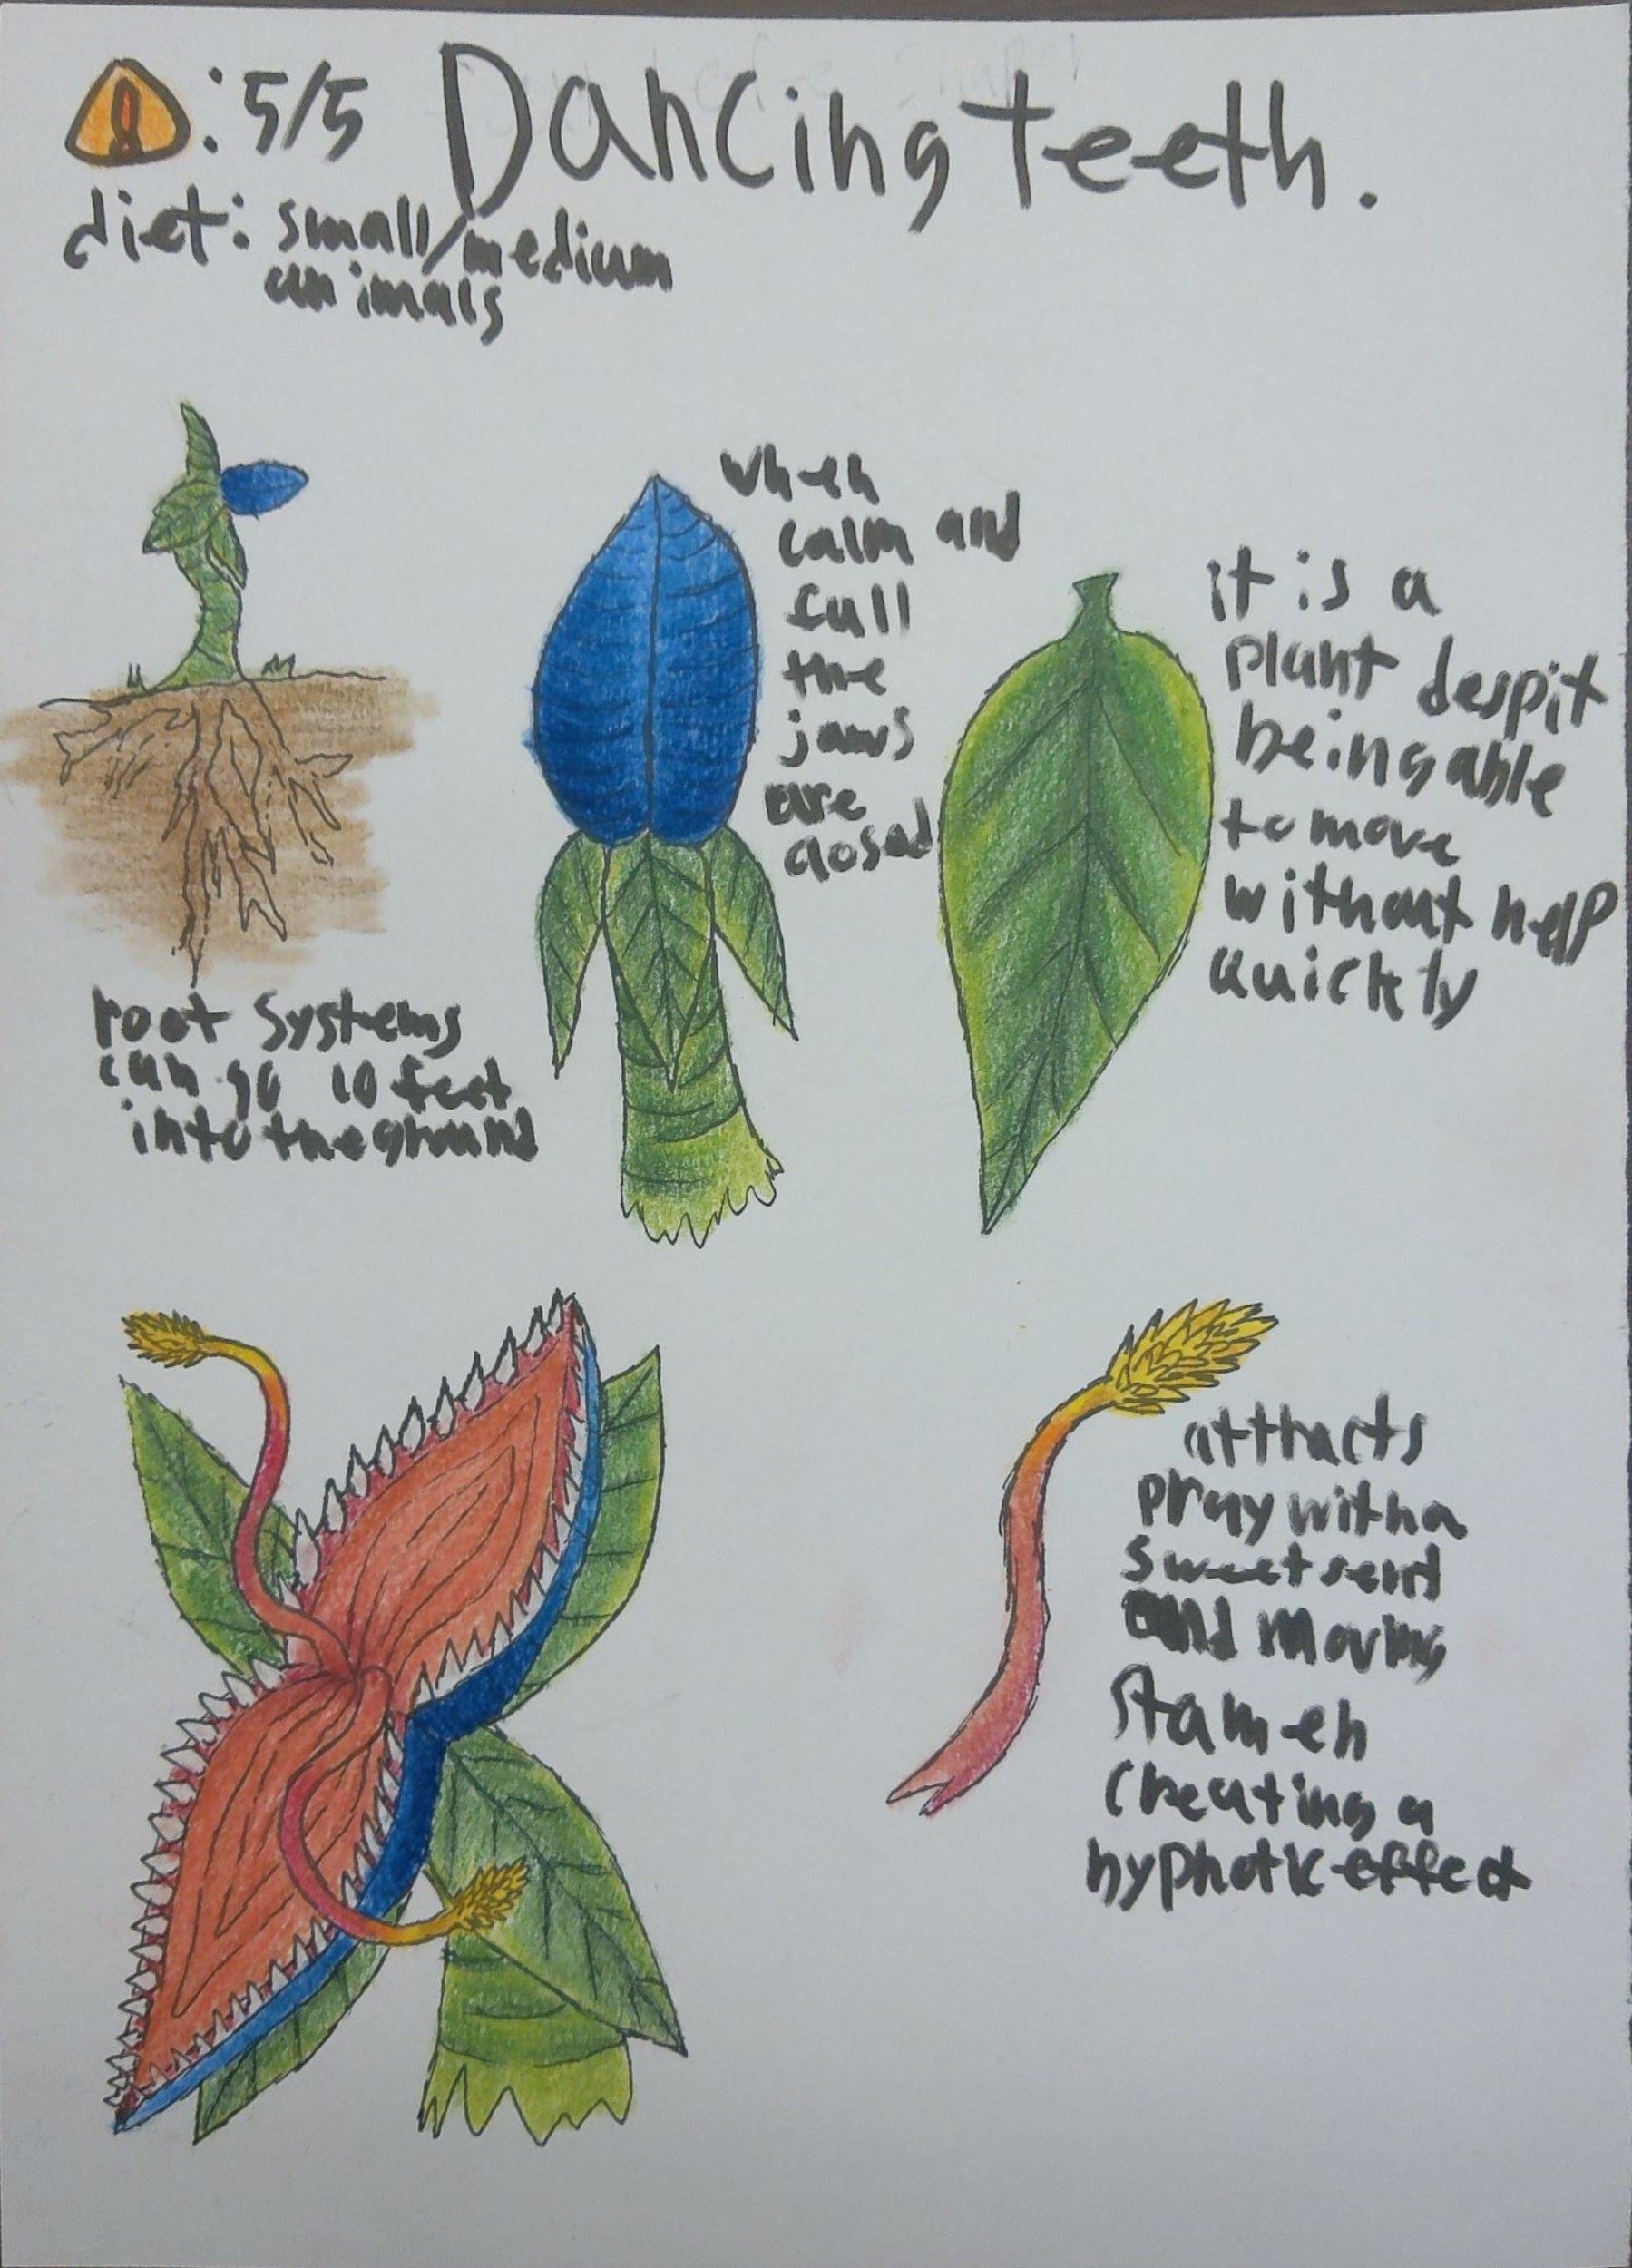 : 5/5 Dancing teeth.
diet: small/medium
animals
when
calm and
full
the
jaws
are
closed
it is a
plant despit
being able
to move
without help
quickly
root systems
can go 10 feet
into the ground
attracts
pray with a
sweet sent
and moving
stamen
creating a
hyphotic effect